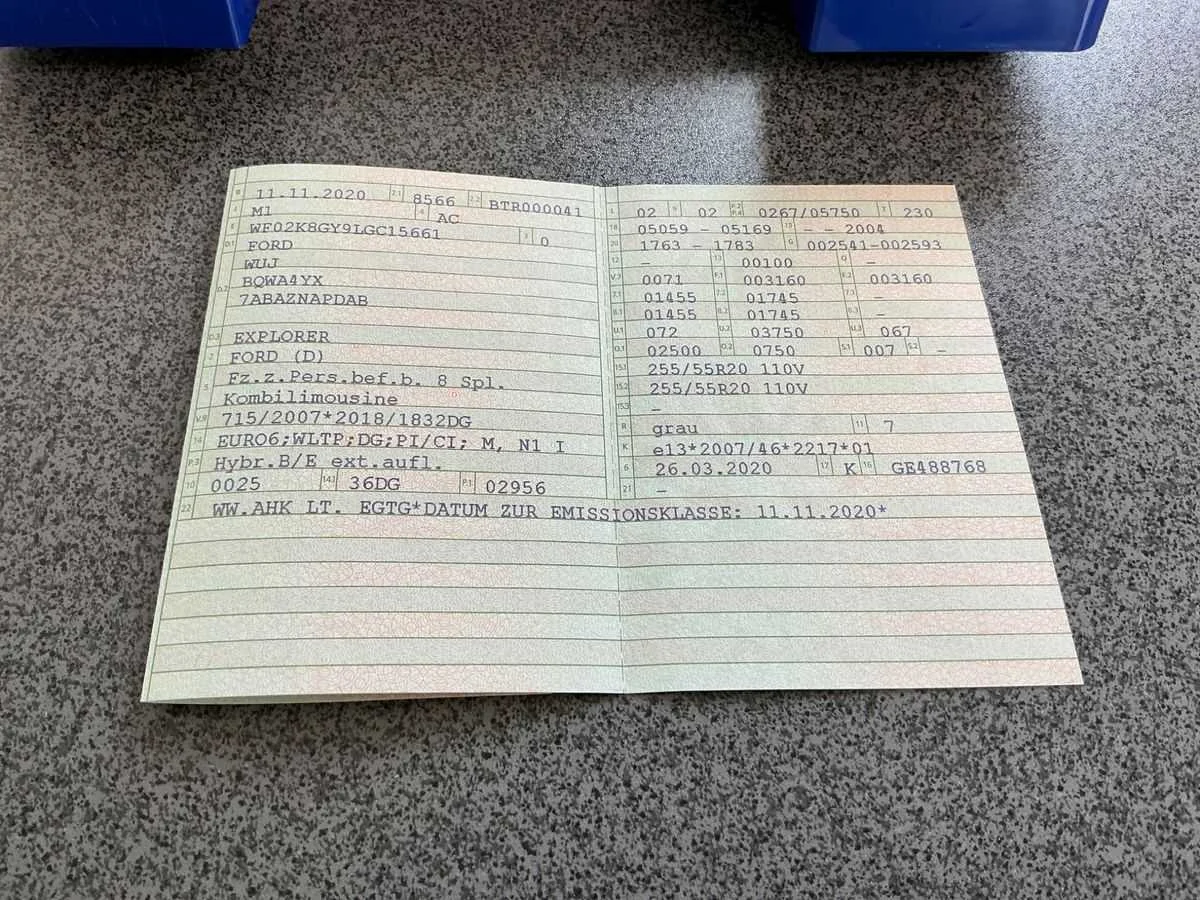 B 11.11.2020 2.1 8566 2.2 BTR000041
J M1 4 AC
E WF02K8GY9LGC15661 3 0
D.1 FORD
WUJ
D.2 BQWA4YX
7ABAZNAPDAB
D.3 EXPLORER
2 FORD (D)
5 Fz.z.Pers.bef.b. 8 Spl.
Kombilimousine
V.9 715/2007*2018/1832DG
14 EURO6;WLTP;DG;PI/CI; M, N1 I
P.3 Hybr.B/E ext.aufl.
10 0025 14.1 36DG P.1 02956
L 02 9 02 P.2 P.4 0267/05750 T 230
18 05059 – 05169 19 – – 2004
20 1763 – 1783 G 002541–002593
12 – 13 00100 Q –
V.7 0071 F.1 003160 F.2 003160
7.1 01455 7.2 01745 7.3 –
8.1 01455 8.2 01745 8.3 –
U.1 072 U.2 03750 U.3 067
O.1 02500 O.2 0750 S.1 007 S.2 –
15.1 255/55R20 110V
15.2 255/55R20 110V
15.3 –
R grau 11 7
K e13*2007/46*2217*01
6 26.03.2020 17 K 16 GE488768
21 –
22 WW.AHK LT. EGTG*DATUM ZUR EMISSIONSKLASSE: 11.11.2020*